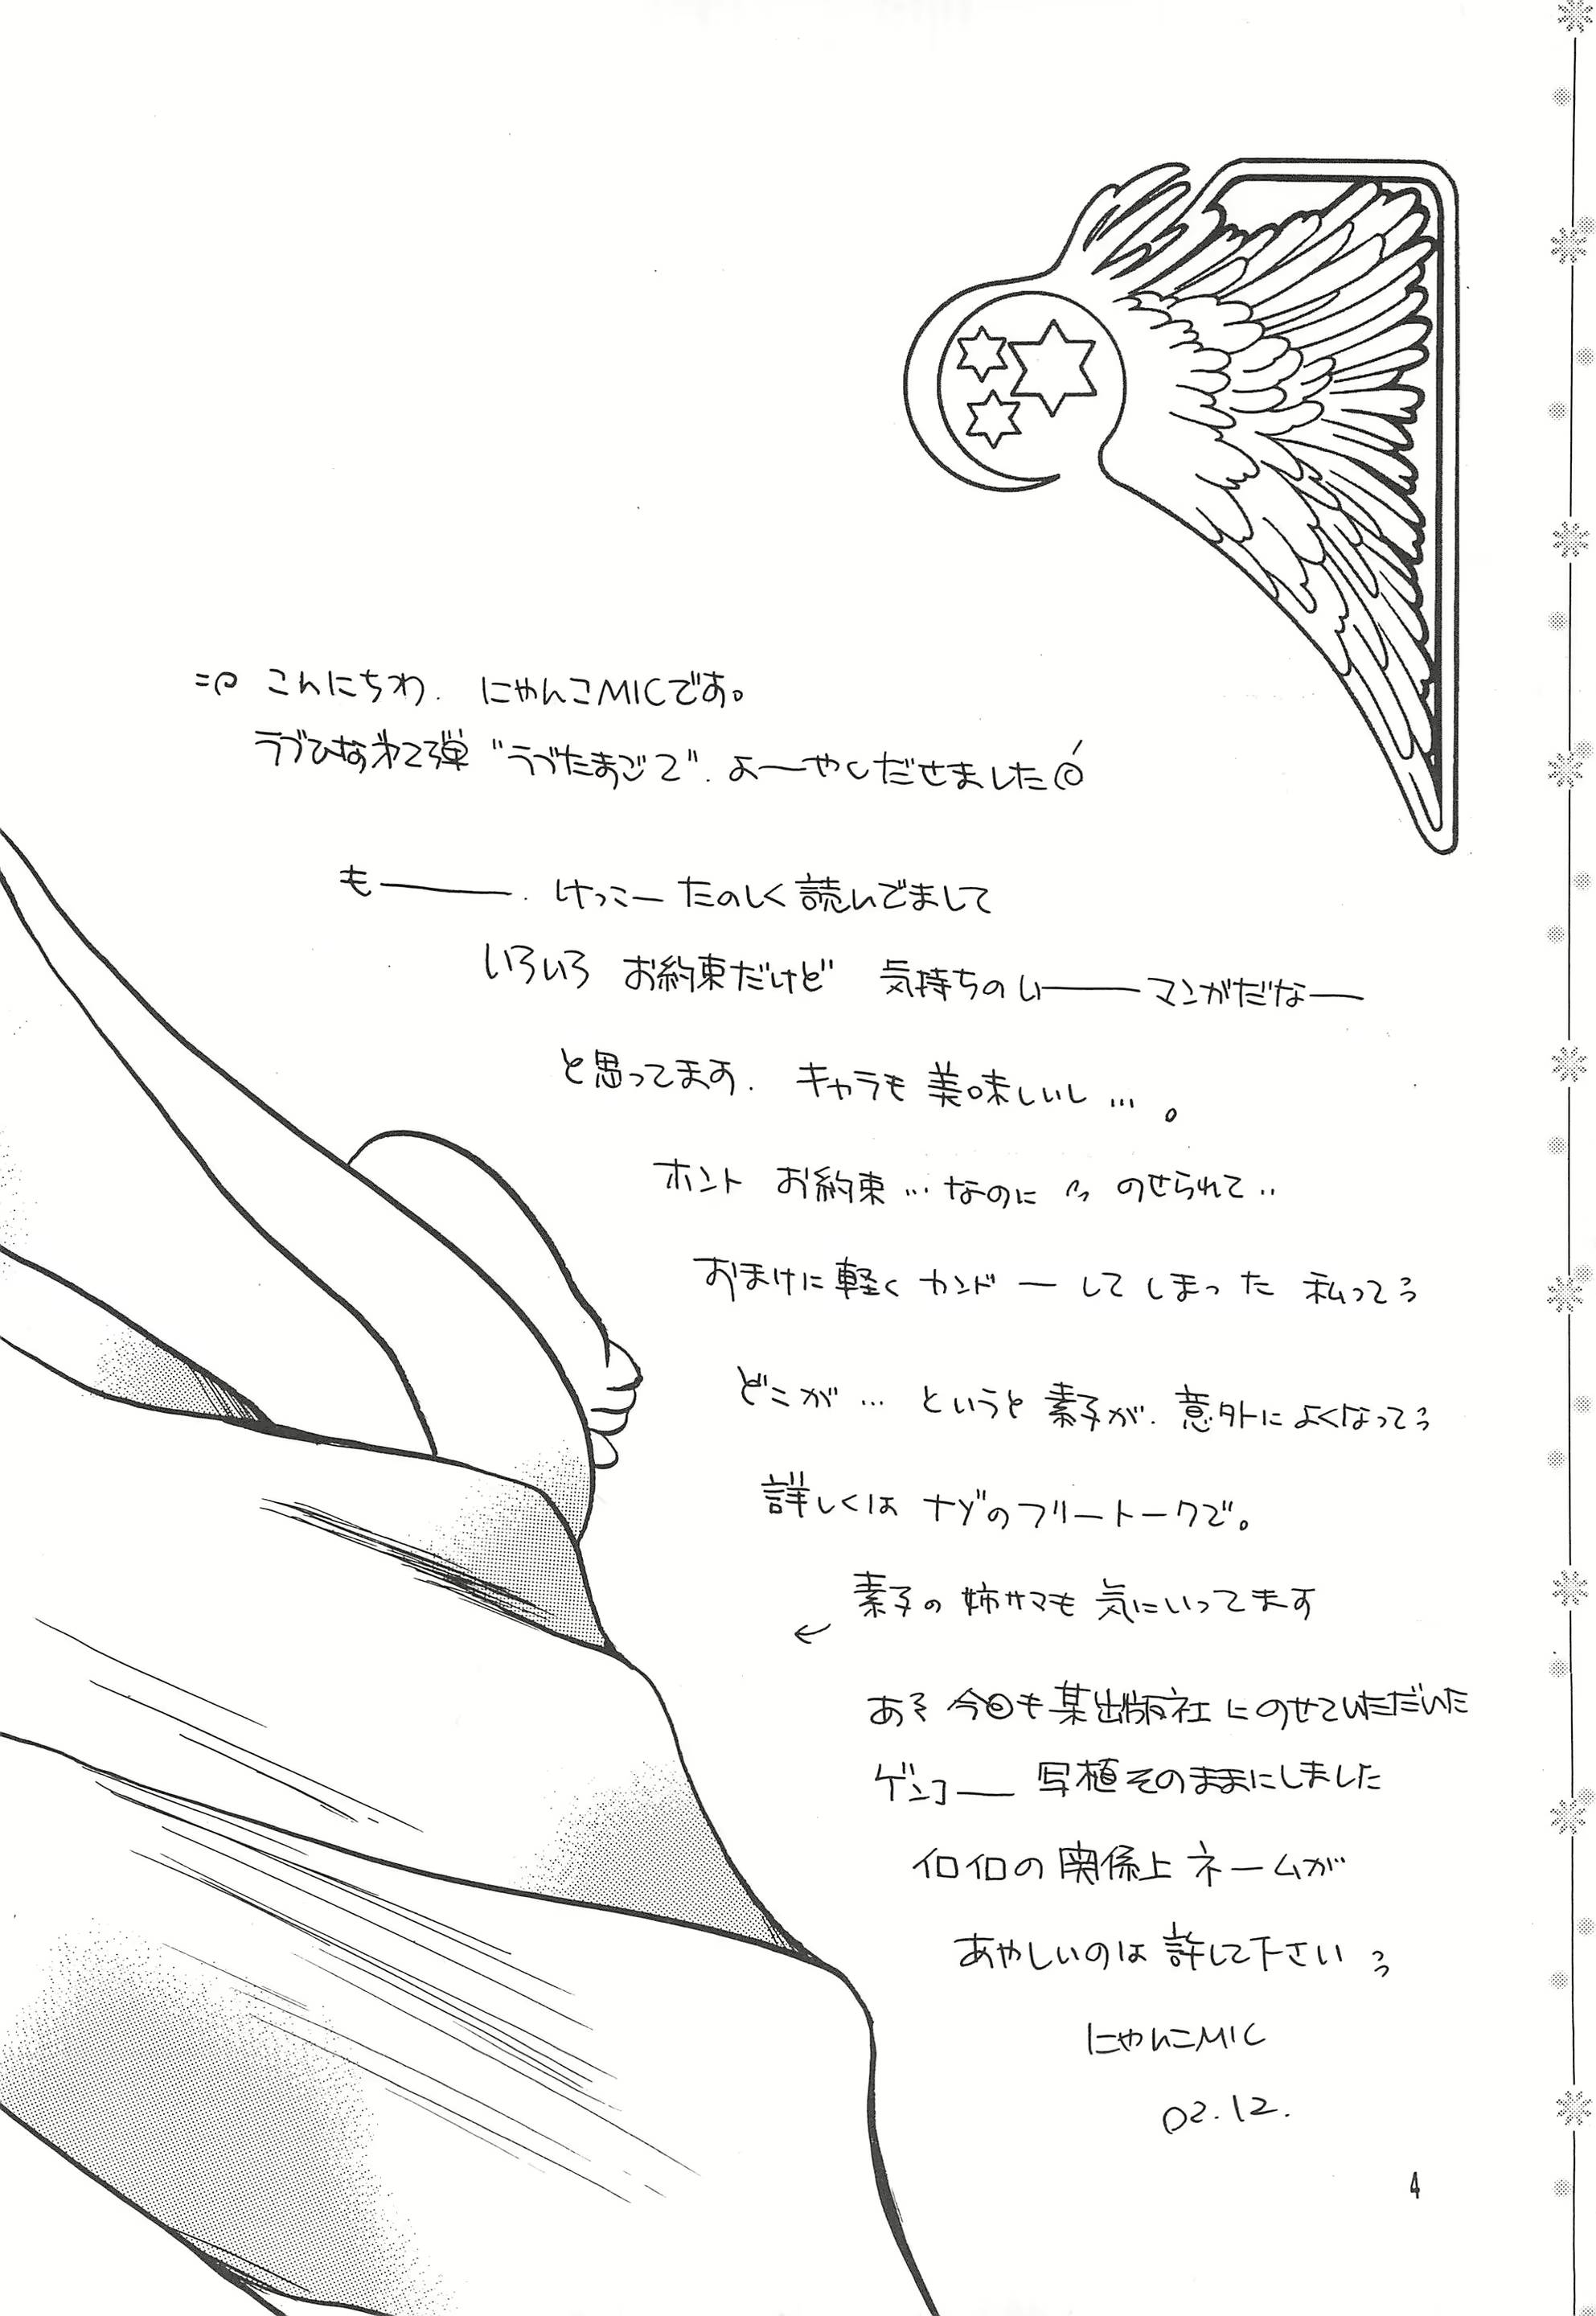 こんにちわ. にゃんこMICです。
ラブひな第2弾 "ラブたまご2". よーやくだせました
もー. けっこー たのしく 読んでまして
いろいろ お約束だけど 気持ちのいーマンガだなー
と思ってます. キャラも 美味しいし…。
ホント お約束…なのに のせられて‥
おまけに軽く カンドーしてしまった 私って
どこが… というと 素子が. 意外に よくなってう
詳しくは ナゾのフリートークで。
素子の 姉サマも 気にいってます
←
あそ 今回も 某出版社にのせていただいた
ゲンコー 写植そのままにしました
イロイロの 関係上 ネームが
あやしいのは 許して下さい
にゃんこMIC
02.12.
4